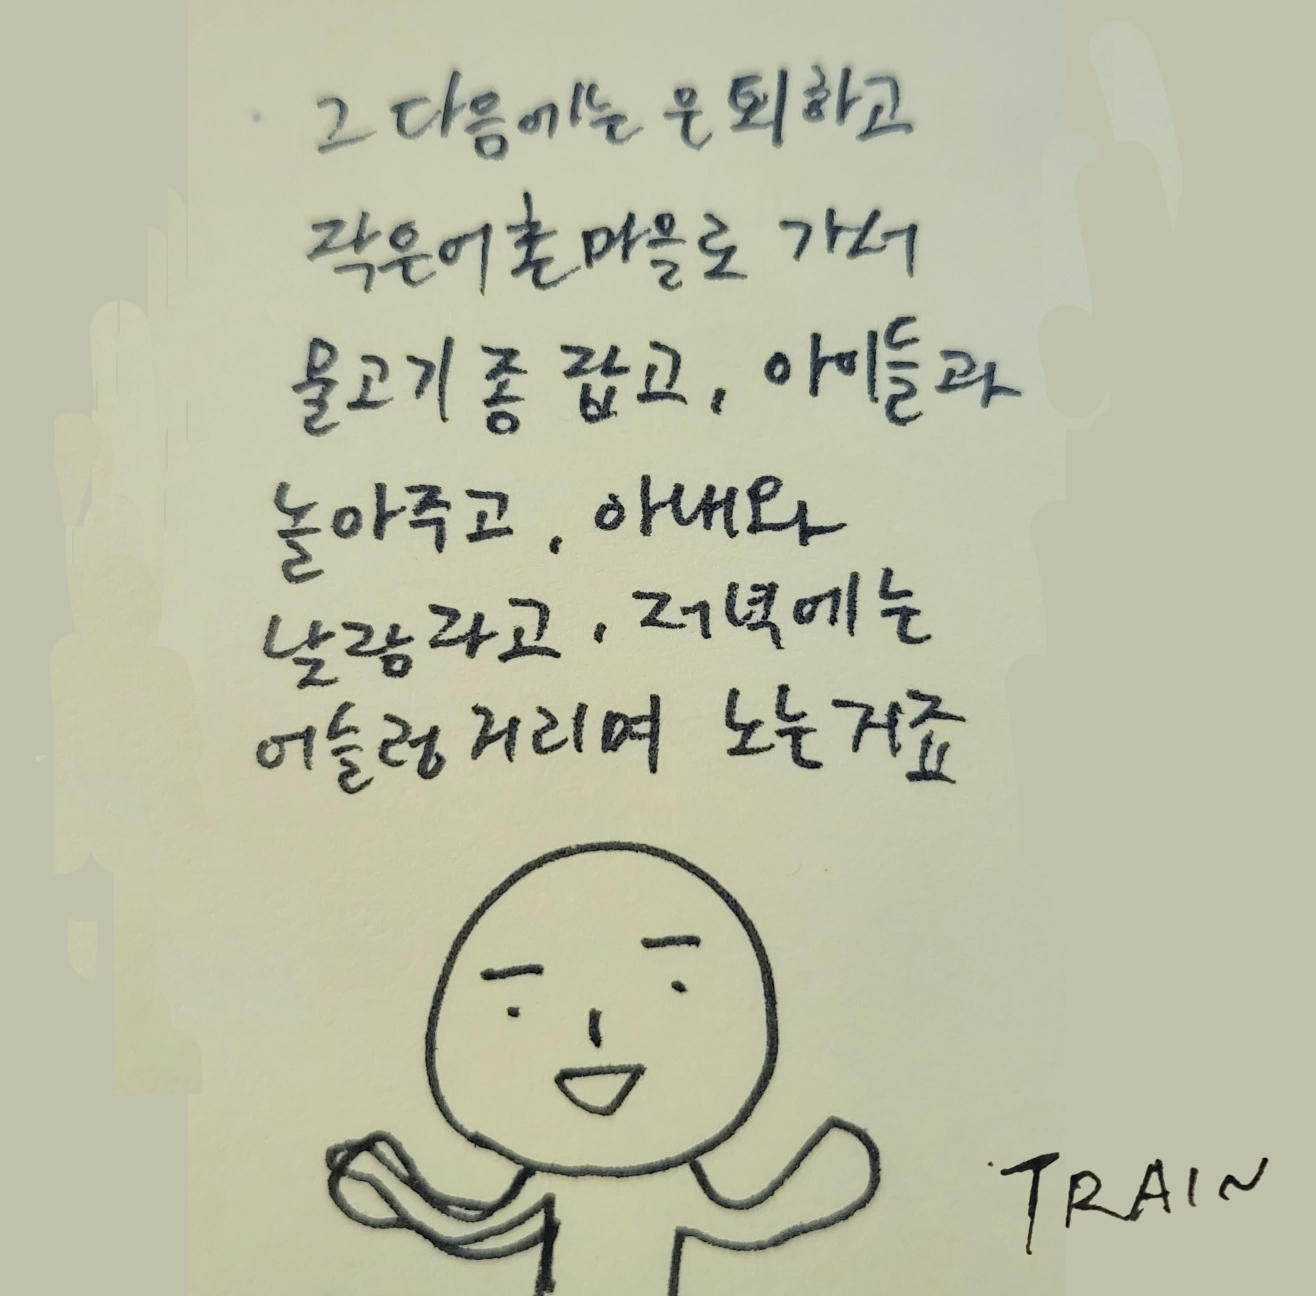 그 다음에는 은퇴하고
작은어촌마을로 가서
물고기 좀 잡고, 아이들과
놀아주고, 아내와
낮잠자고, 저녁에는
어슬렁거리며 노는거죠
TRAIN